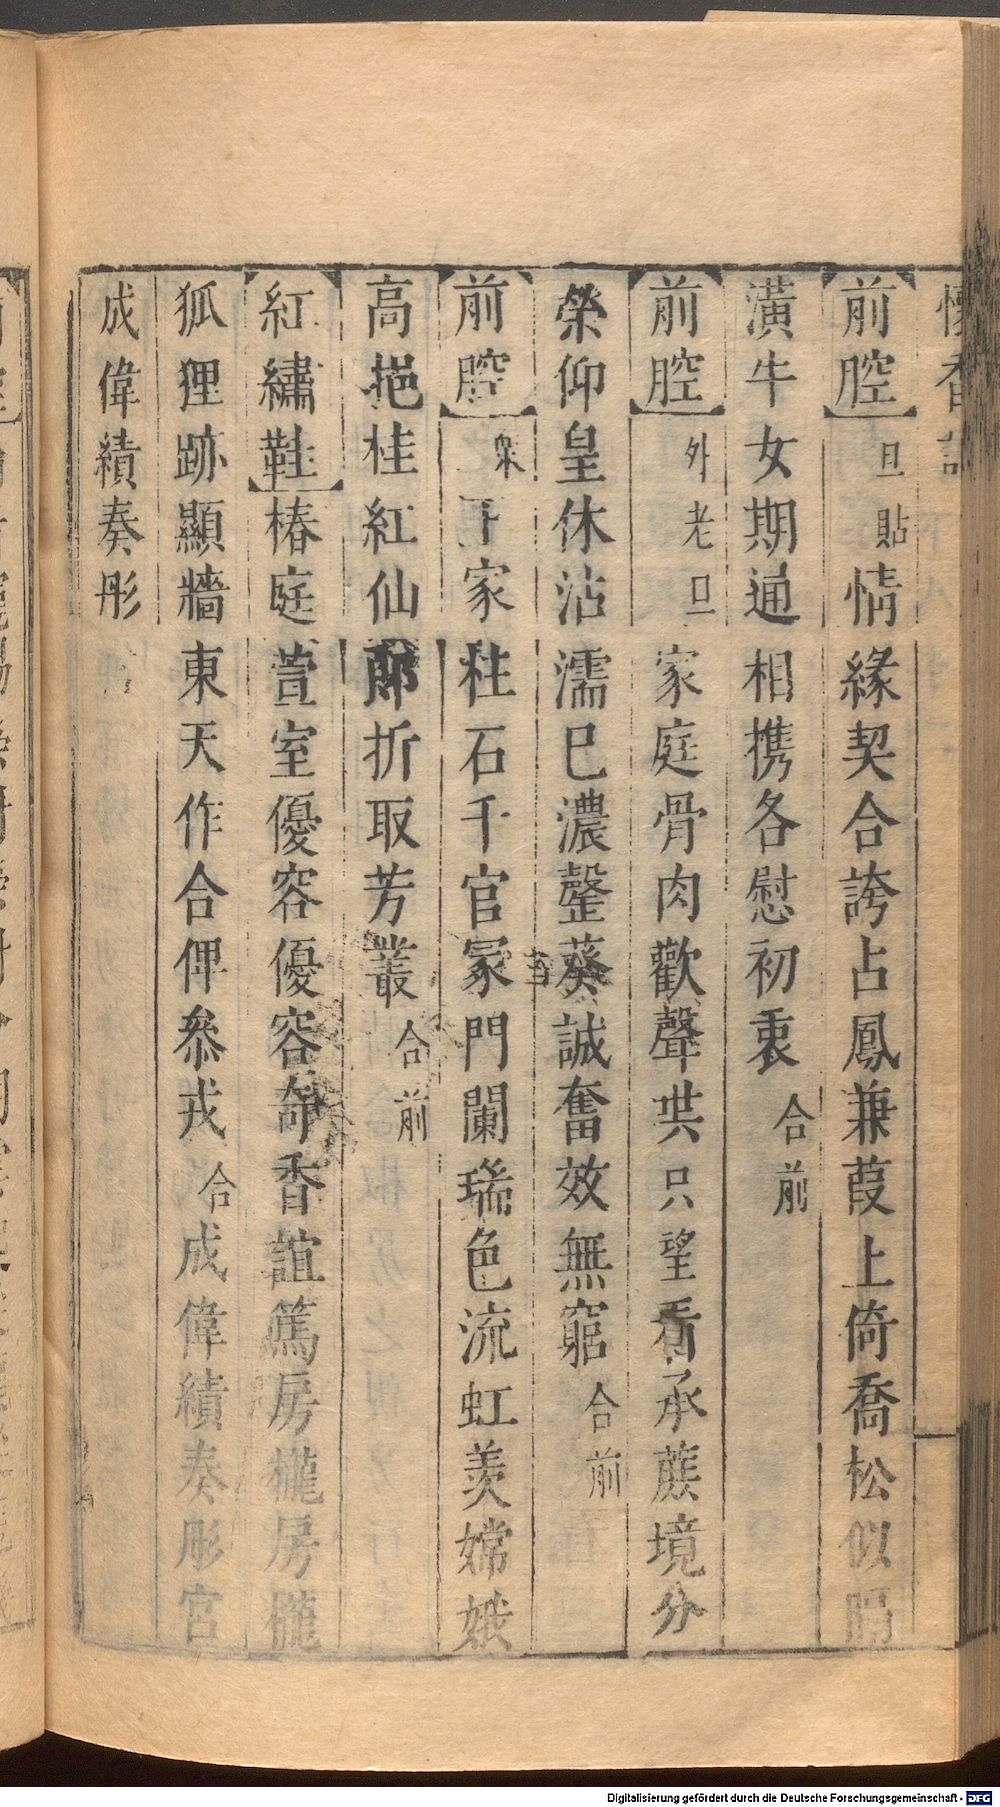 懷香記
前腔 旦貼 情緣契合誇占鳳兼葭上倚喬松似
潢牛女期通相携各慰初衷 合前
前腔 外老旦 家庭骨肉歡聲共只望看承蔟境分
榮仰皇休沾濡已濃罄葵誠奮效無窮 合前
前腔 衆 家柱石千官冢門闌瑞色流虹羡嫦娥
高挹桂紅仙郎折取芳叢 合前
紅繡鞋 椿庭萱室優容優容奇香誼篤房櫳房櫳
狐狸跡顯牆東天作合俾叅戎 合 成偉績奏彤宮
成偉績奏彤
Digitalisierung gefördert durch die Deutsche Forschungsgemeinschaft - DFG